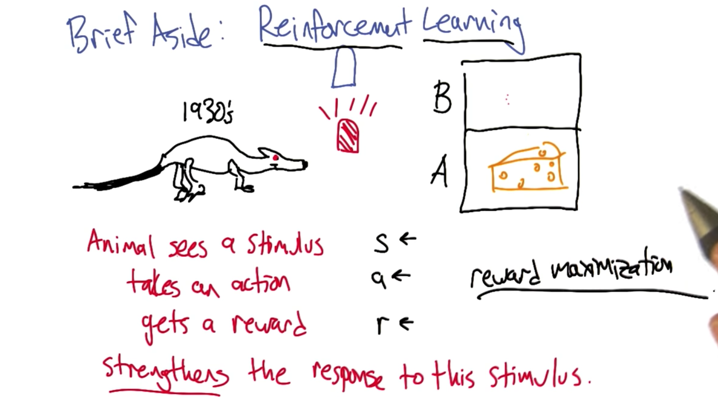 Brief Aside: Reinforcement Learning
1930's
B
A
Animal sees a stimulus S ←
takes an action a ←
reward maximization
gets a reward r ←
strengthens the response to this stimulus.